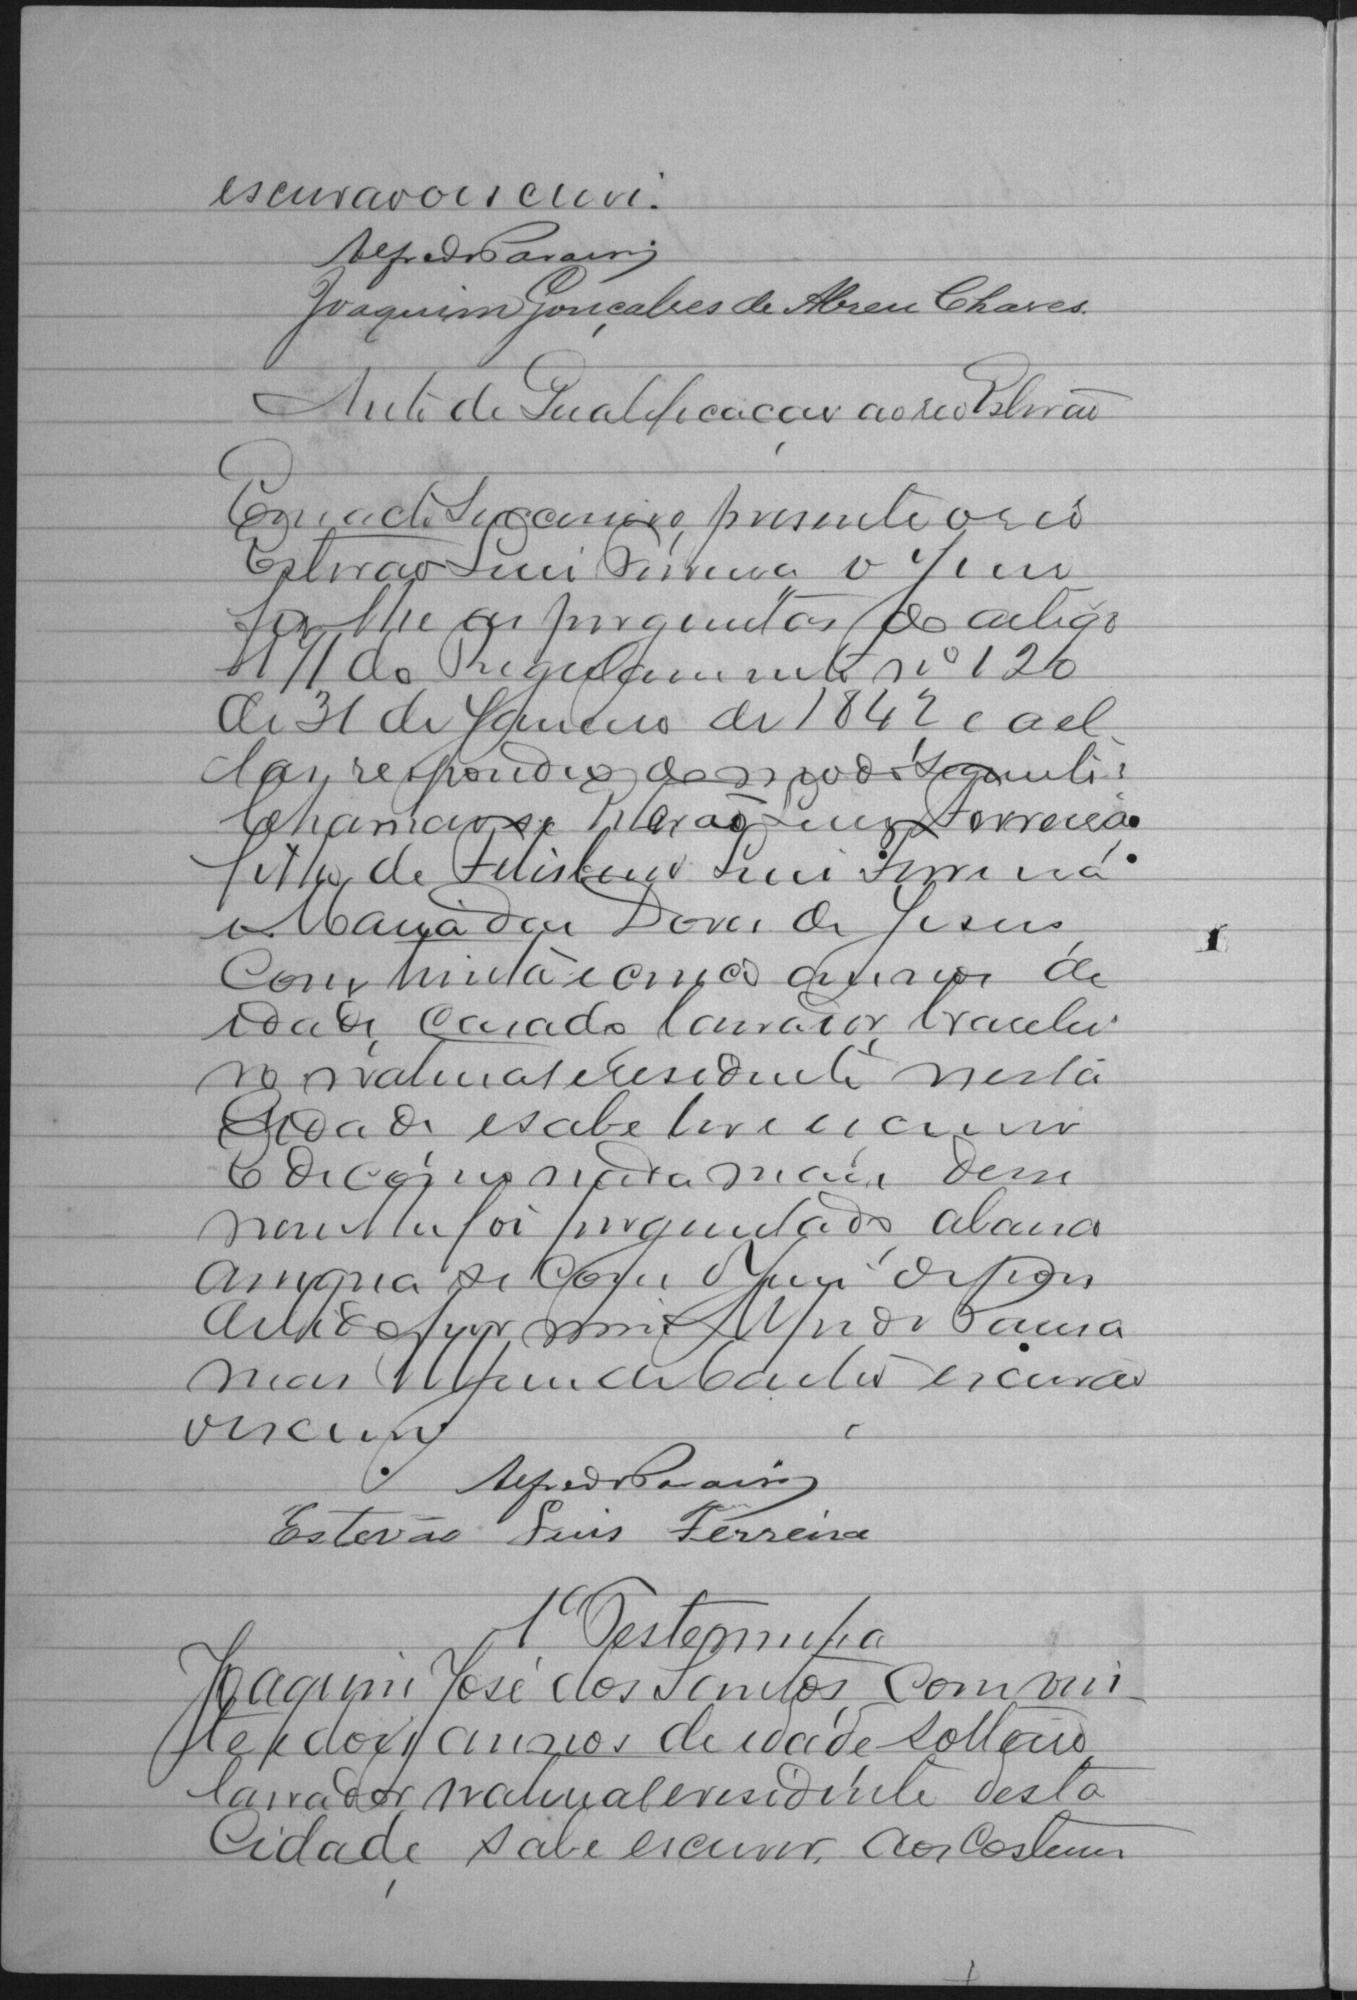 escrivão o escrevi.
Alfredo Param
Joaquim Gonçalves de Abreu Chaves.
Auto de Qualificação ao reo Estevão
presente o reo
Estevão Luis Ferreira o Juiz
fez lhe as perguntas do artigo
171 do Regulamento nº 120
de 31 de Janeiro de 1842 e a el
las respondeo do modo seguinte:
Chamar-se Estevão Luis Ferreira
filho de Luis Ferreira
e Maria das Dores de Jesus
com trinta e cinco annos de
idade, casado lavrador, brasilei
ro natural e residente nesta
Cidade e sabe ler e escrever
E como nada mais disse
nem lhe foi perguntado
assigna se com o Juiz depois
de lido por mim
escrivão
o escrevi
Alfredo Param
Estevão Luis Ferreira
1ª Testemunha
Joaquim José dos Santos, com vin
te e dois annos de idade solteiro
lavrador, natural e residente desta
Cidade, sabe escrever, aos costumes